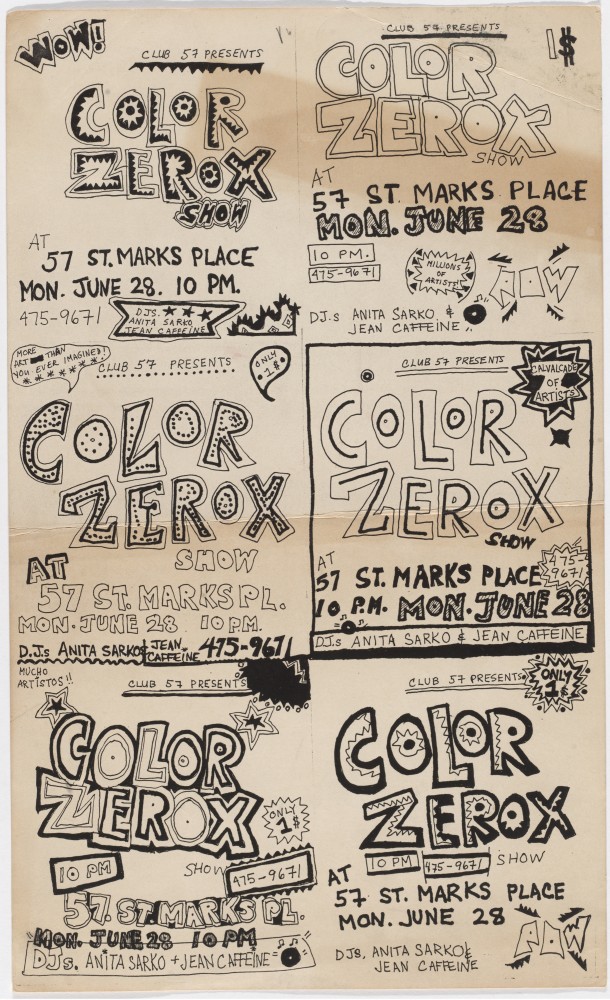 WOW!
CLUB 57 PRESENTS
COLOR
ZEROX
SHOW
AT
57 ST. MARKS PLACE
MON. JUNE 28. 10 PM.
475-9671
DJS.
ANITA SARKO
JEAN CAFFEINE
CLUB 57 PRESENTS
1$
COLOR
ZEROX
SHOW
AT
57 ST. MARKS PLACE
MON. JUNE 28
10 PM.
475-9671
MILLIONS
OF
ARTISTS!
POW
DJ.s ANITA SARKO &
JEAN CAFFEINE
MORE
ART THAN
YOU EVER IMAGINED!
CLUB 57 PRESENTS
ONLY
1$
COLOR
ZEROX
SHOW
AT
57 ST. MARKS PL.
MON. JUNE 28. 10 PM.
D.J.s ANITA SARKO & JEAN CAFFEINE 475-9671
CLUB 57 PRESENTS
CALVALCADE
OF
ARTISTS
COLOR
ZEROX
SHOW
AT
57 ST. MARKS PLACE
475-
9671
10 P.M. MON. JUNE 28
DJ.s ANITA SARKO & JEAN CAFFEINE
MUCHO
ARTISTOS!!
CLUB 57 PRESENTS
COLOR
ZEROX
ONLY
1$
10 PM
SHOW
475-9671
57. ST. MARKS PL.
MON. JUNE 28 10 PM
DJs. ANITA SARKO + JEAN CAFFEINE
CLUB 57 PRESENTS
ONLY
1$
COLOR
ZEROX
10 PM
475-9671
SHOW
AT
57 ST. MARKS PLACE
MON. JUNE 28
POW
DJS, ANITA SARKO &
JEAN CAFFEINE